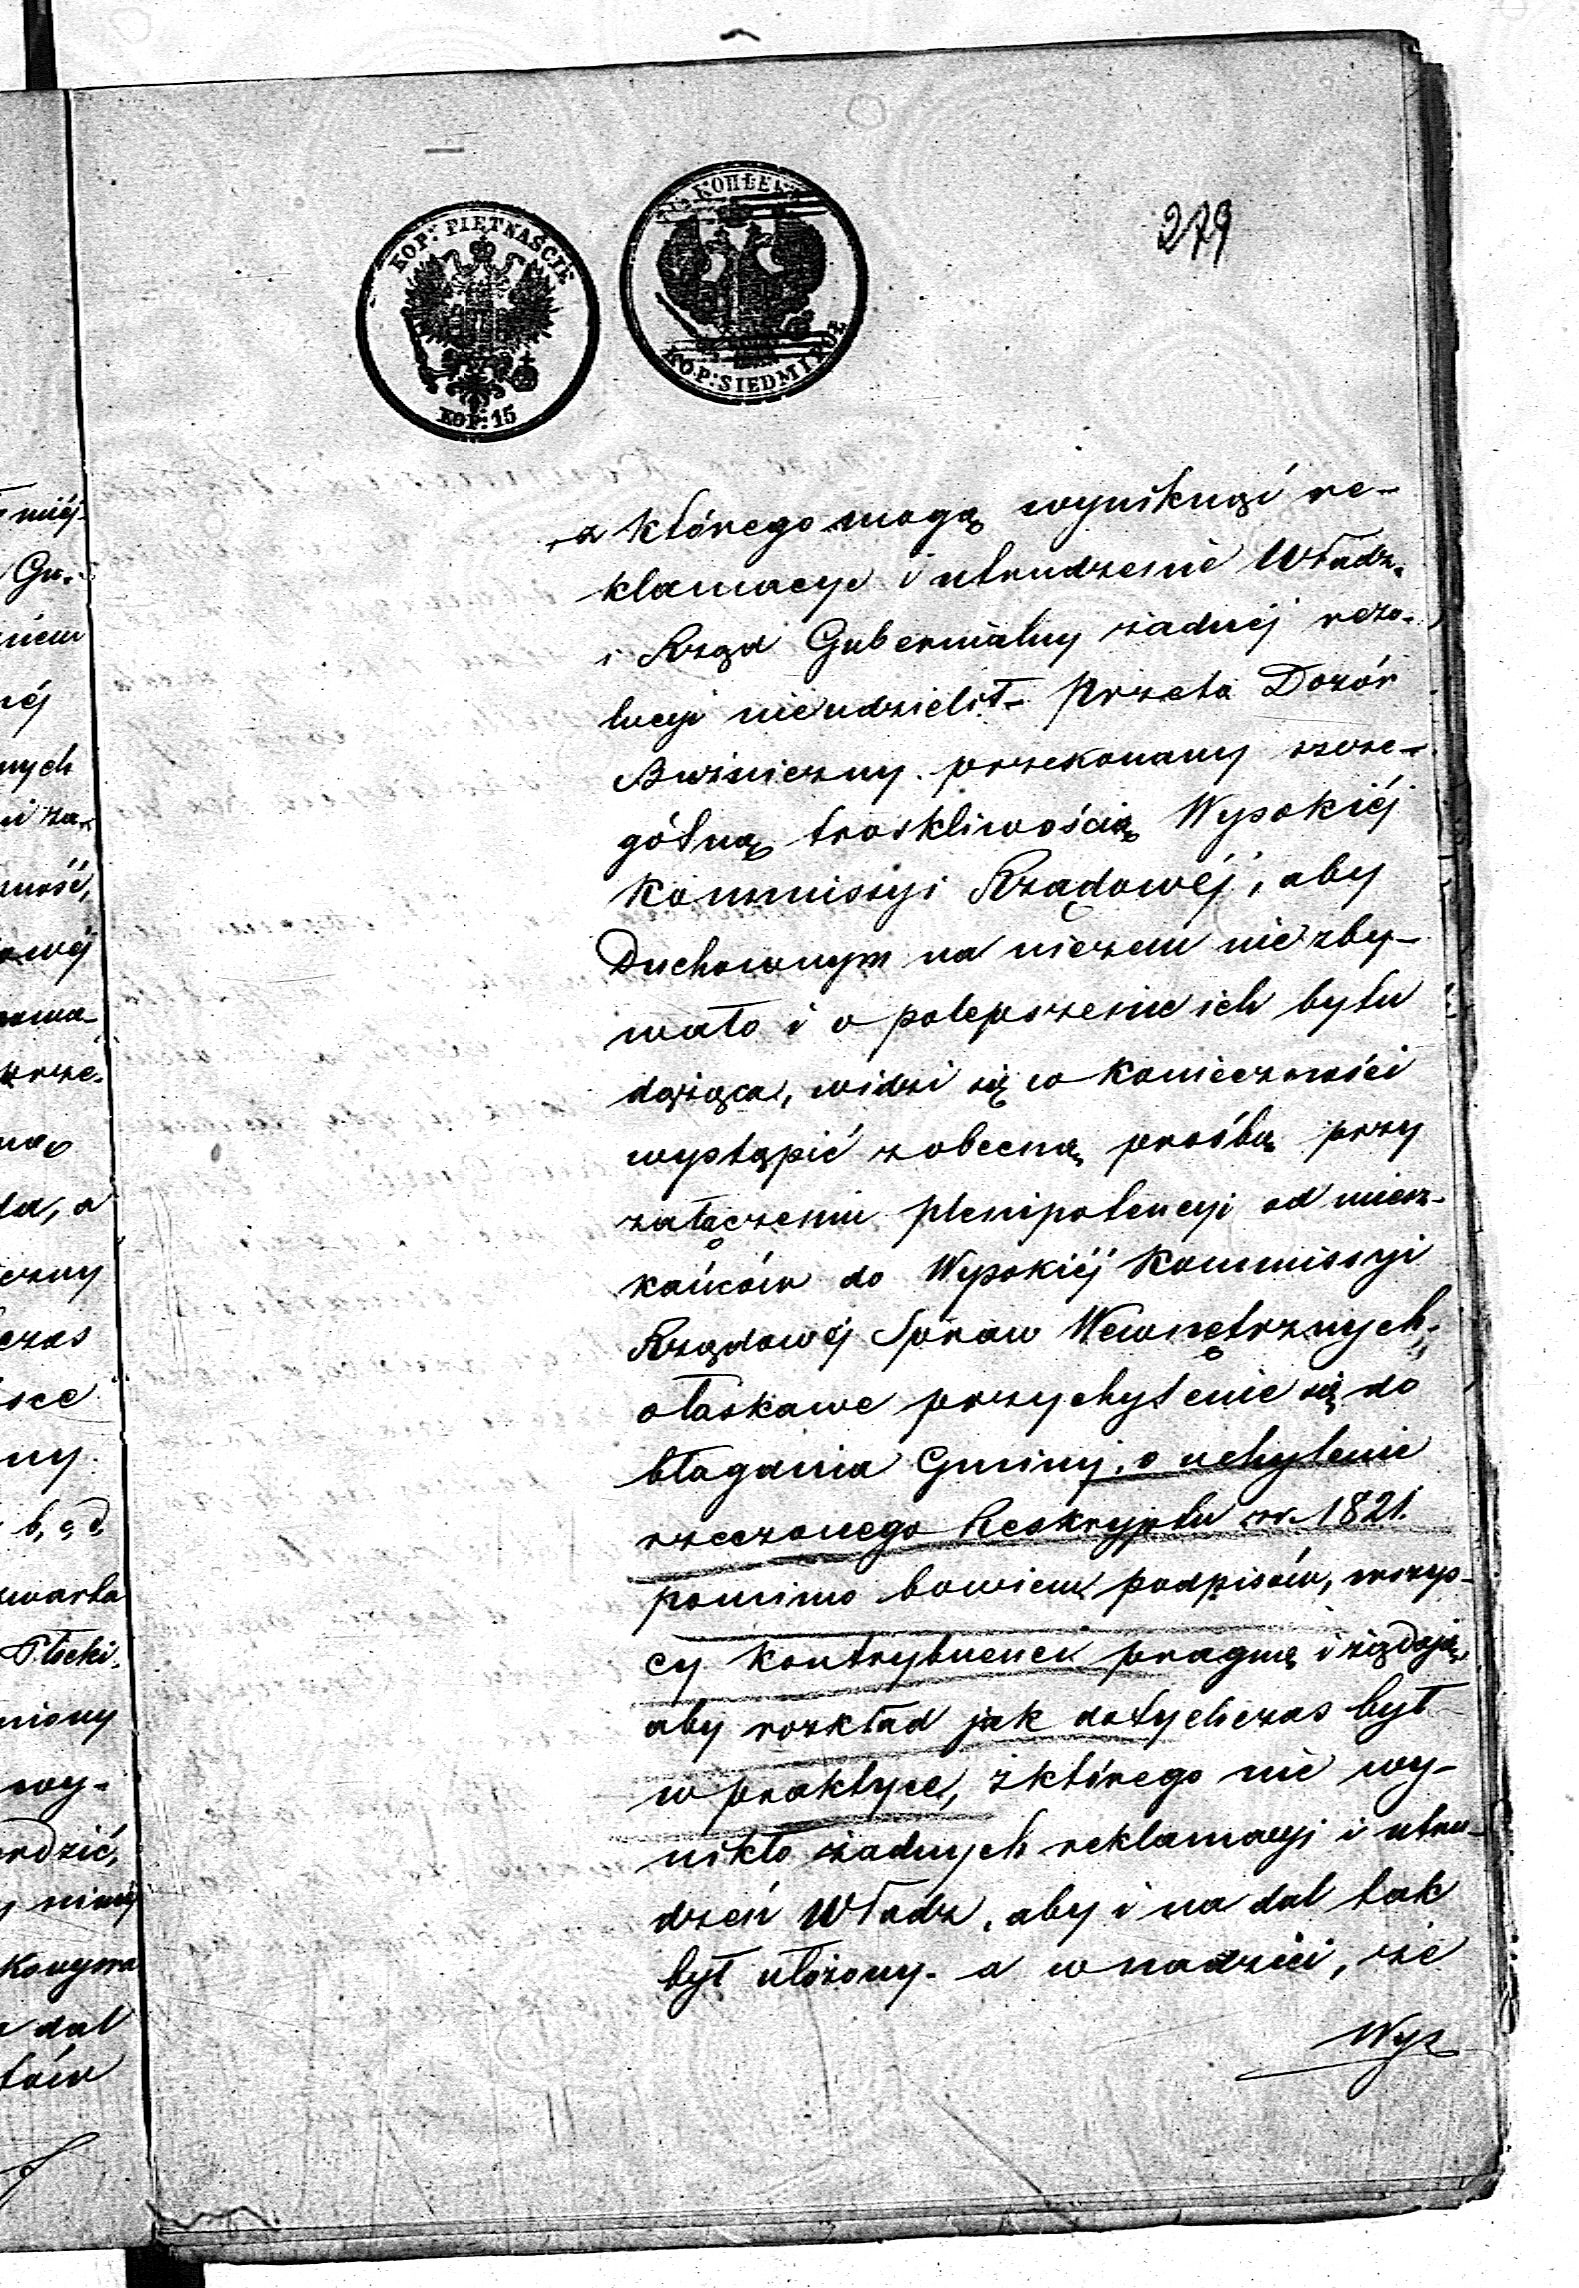 279
KOP: PIĘTNAŚCIE
KOP: 15
KOP: SIEDM I PÓŁ
z którego mogą wyniknąć re-
klamacye i utrudzenie Władz.
i Rząd Gubernialny żadnéj rezo-
lucyi nieudzielił - Przeto Dozór
Bużniczny przekonany szcze-
gólną troskliwością Wysokiéj
Kommissyi Rządowéj, aby
Duchownym na niczem niezby-
wało i o polepszenie ich bytu
dążąca, widzi się w konieczności
wystąpić z obecną prośbą przy
załączeniu plenipotencyi od miesz-
kańców do Wysokiéj Kommissyi
Rządowéj Spraw Wewnętrznych,
o łaskawe przychylenie się do
błagania Gminy, o uchylenie
rzeczonego Reskryptu z r. 1821.
pomimo bowiem podpisów, wszys-
cy kontrybuenci pragną i żądają,
aby rozkład jak dotychczas był
w praktyce, z którego nie wy-
nikło żadnych reklamacyi i utru-
dzeń Władz, aby i na dal tak
był ułożony - a w nadziei, że
Wys
miéj-
Gu-
niem
nych
i za-
ność,
owéj
prze-
da, a
czny
czas
sce
ny.
b, c, d
warta
Płocki.
niony
wy-
rdzić,
dal
tów